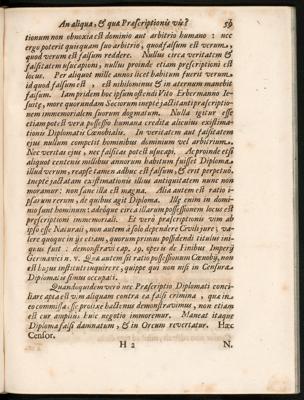 An aliqua, & quæ Præscriptionis vis? 59
tionum non obnoxia est dominio aut arbitrio humano: nec
ergo poterit quisquam suo arbitrio, quod falsum est verum,
quod verum est falsum reddere. Nullus circa veritatem &
falsitatem usucapioni, nullus proinde etiam præscriptioni est
locus. Per aliquot mille annos licet habitum fuerit verum,
id quod falsum est, est nihilominus & in æternum manebit
falsum. Jam pridem hoc ipsum ostendi Vito Erbermanno Je-
suitæ, more quorundam Sociorum ineptè jactitanti præscriptio-
nem immemorialem suorum dogmatum. Nulla igitur esse
etiam potest vera possessio humana credita alicuius existima-
tionis Diplomatis Cœnobialis. In veritatem aut falsitatem
ejus nullum competit hominibus dominium vel arbitrium.
Nec veritas ejus, nec falsitas potest usucapi. Ac proinde etsi
aliquot centenis millibus annorum habitum fuisset Diploma
illud verum, reapse tamen adhuc est falsum, & erit perpetuò.
Ineptè jactatam existimationis illius antiquitatem nunc non
moramur: non sane illa est magna. Alia autem est ratio i-
psarum rerum, de quibus agit Diploma. Ille enim in domi-
nio sunt hominum: adeóque circa illarum possessionem locus est
præscriptioni immemoriali. Et verò præscriptionis vim ab
ipso esse Naturali, non autem à solo dependere Civili jure; va-
lere quoque in ijs etiam, quorum pronus possidendi titulus ini-
quus fuit: demonstravi cap. 19. opere de Finibus Imperij
Germanici n. v. Quæ autem sit ratio possessionum Cœnobij, non
est hujus instituti inquirere, quippe qui non nisi in Censura
Diplomatis simus occupati.
Quandoquidem verò nec Præscriptio Diplomati conci-
liare apta est vim aliquam contra ea falsi crimina, quæ in
eo commissa esse prolixe hactenus demonstravimus, non etiam
est cur amplius huic negotio immoremur. Maneat itaque
Diploma falsi damnatum, & in Orcum revertatur. Hæc
Censor.
H 2 N.